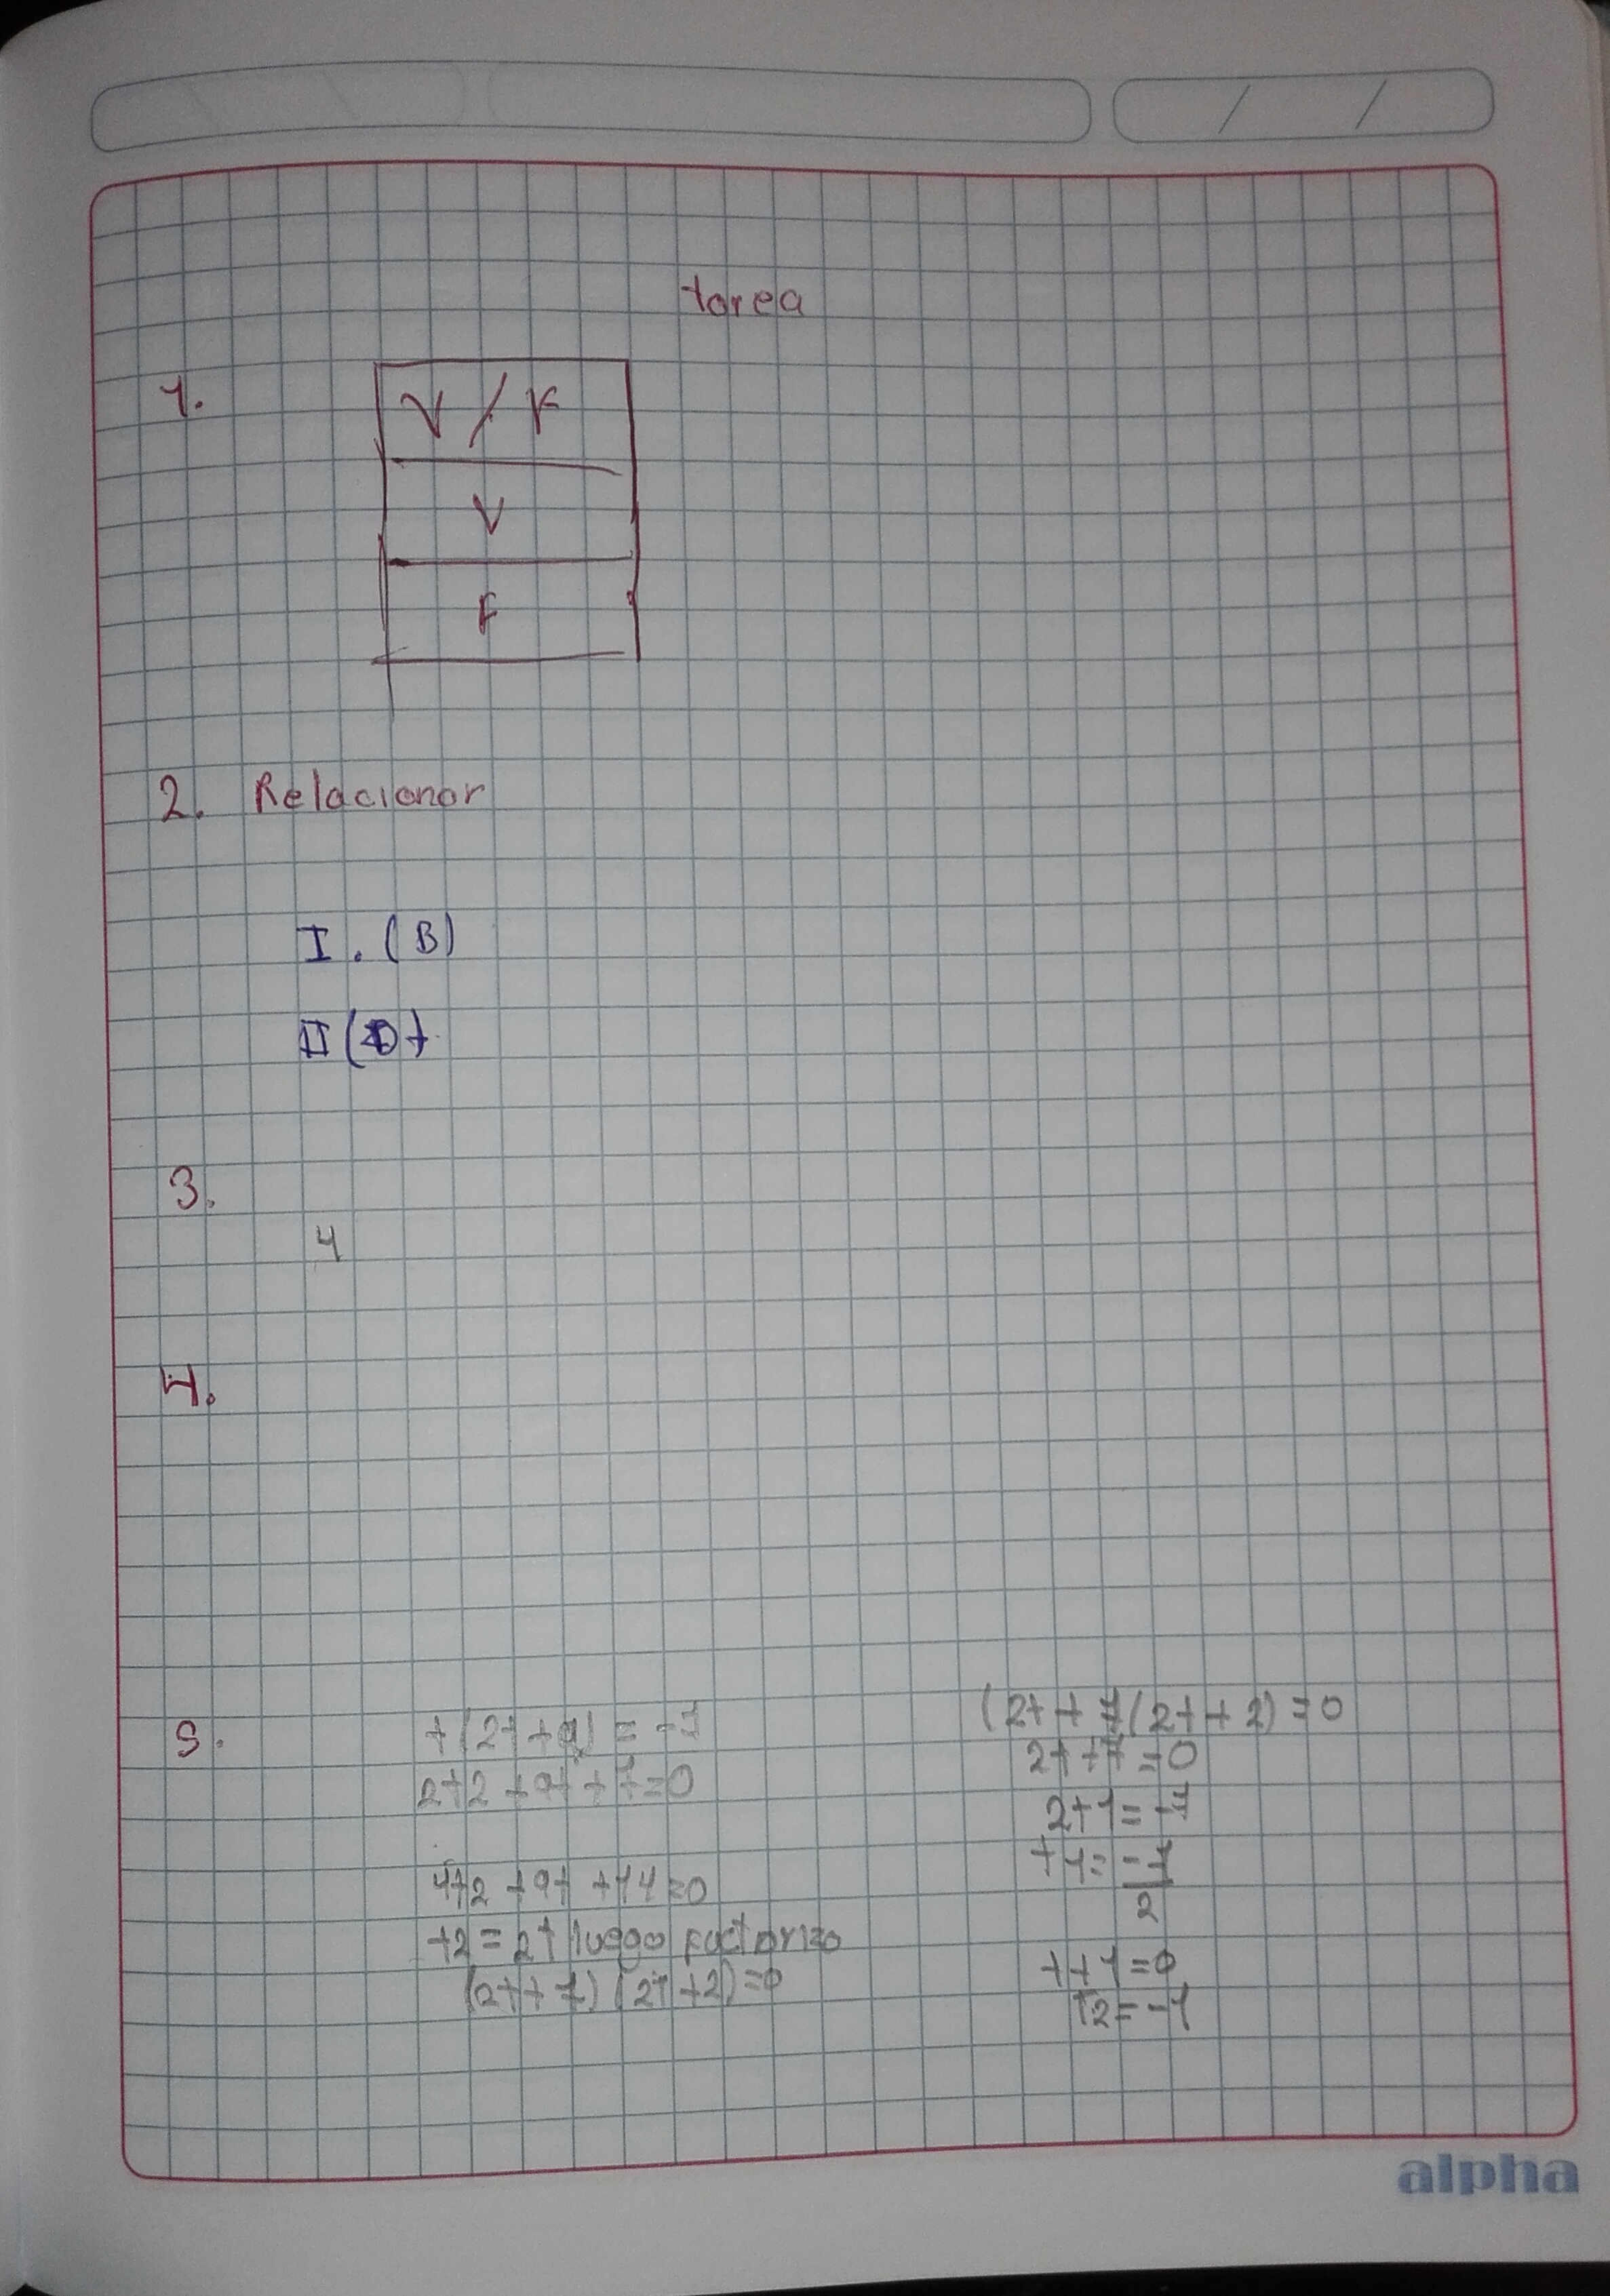 tarea
1.
V / F
V
F
2. Relacionar
I. (B)
II (D)
3.
4
4.
5.
t(2t+9) = -7
2t2 +9t +7=0
4t2 +9t +14=0
t2 = 2t luego factorizo
(2t+7) (2t+2)=0
(2t+7(2t+2)=0
2t+7=0
2t1=-7
t1=-7
2
t+1=0
t2=-1
alpha